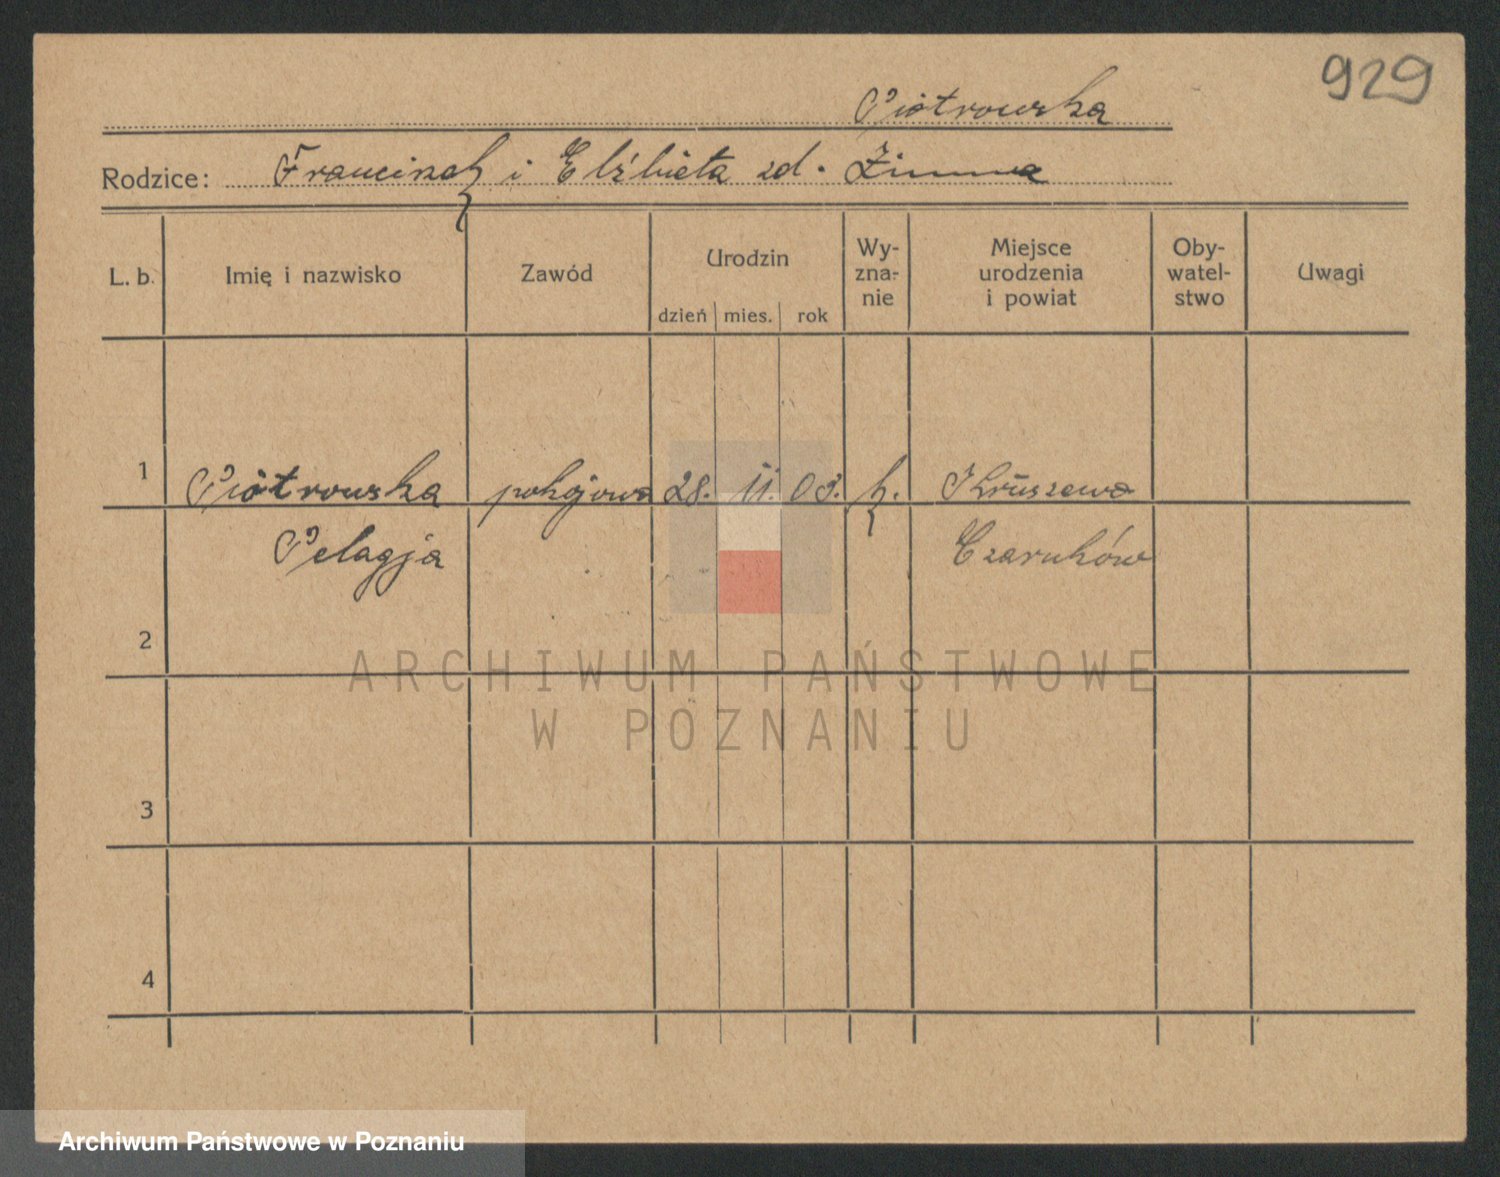 929
Piotrowska
Rodzice: Franciszek i Elżbieta zd. Zimna
L. b. Imię i nazwisko Zawód Urodzin Wy-zna-nie Miejsce urodzenia i powiat Oby-watel-stwo Uwagi
dzień mies. rok
1 Piotrowska pokojowa 28. 11. 03. k. Kruszewo
Pelagja Czarnków
2
3
4
ARCHIWUM PAŃSTWOWE
W POZNANIU
Archiwum Państwowe w Poznaniu